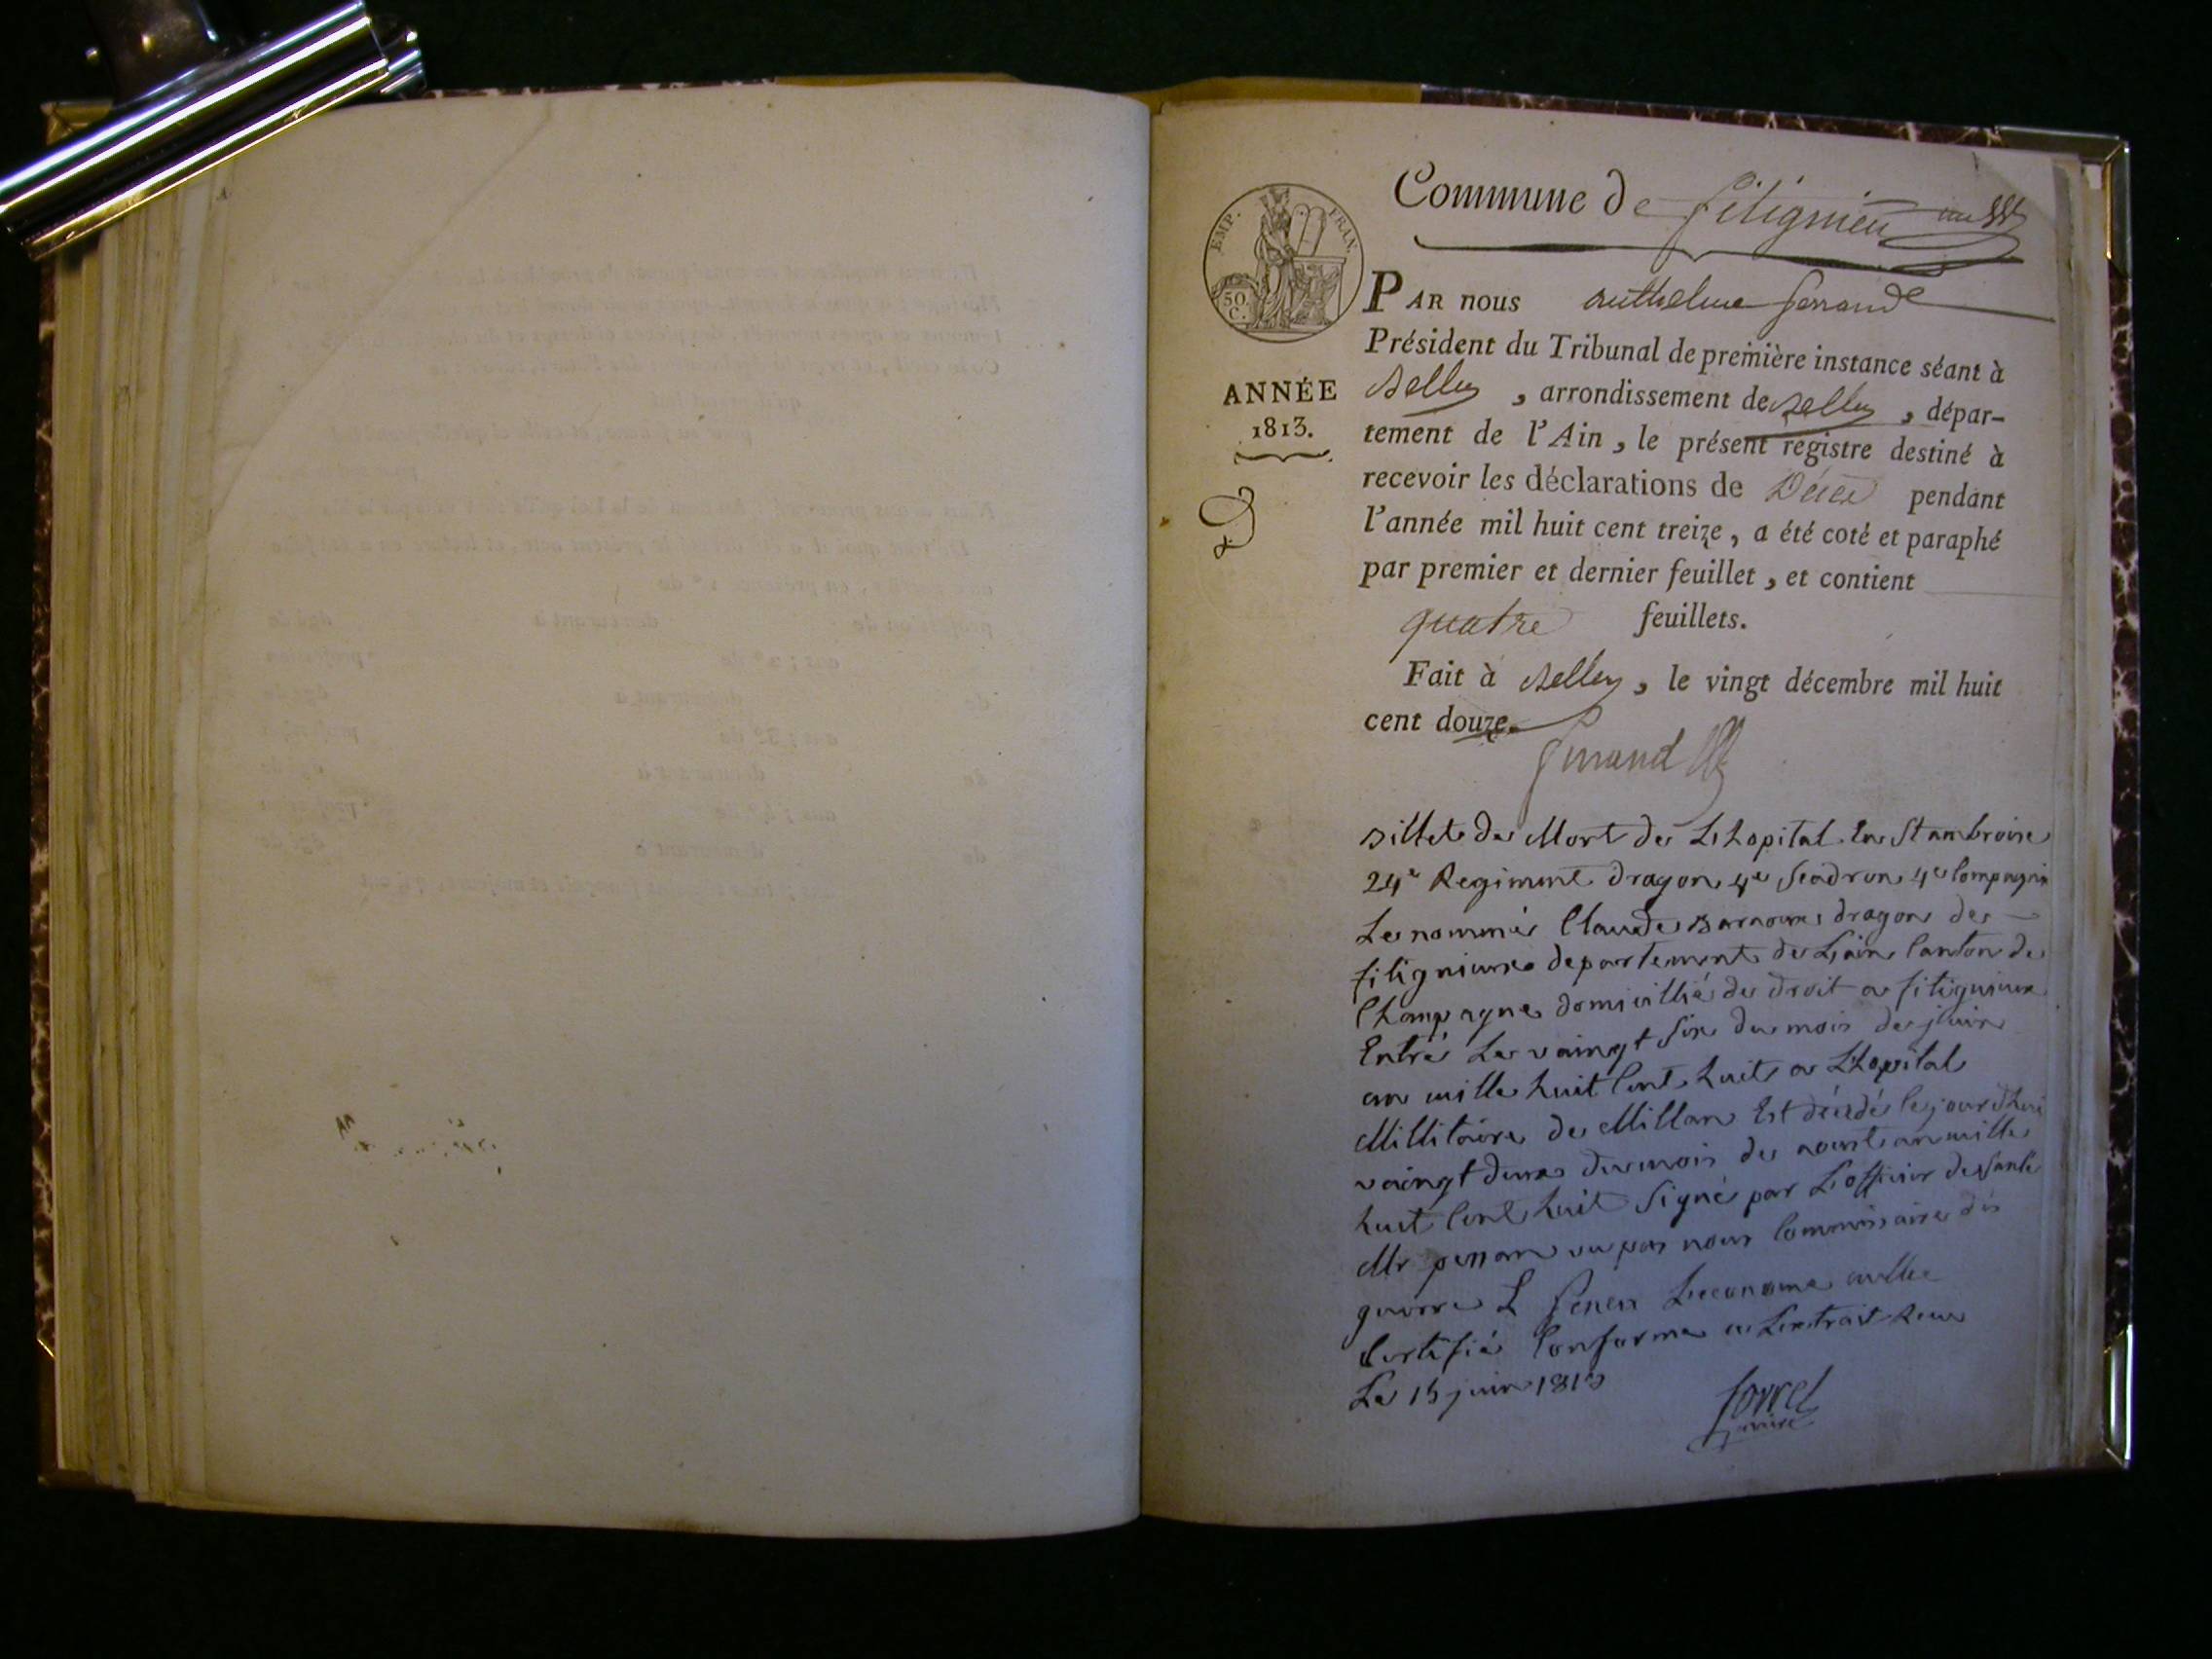 Commune de fitignieu
EMP. FRAN.
50. C.
ANNÉE
1813.
D
PAR nous Anthelme ferrand
Président du Tribunal de première instance séant à
Belley , arrondissement de Belley , dépar-
tement de l'Ain , le présent registre destiné à
recevoir les déclarations de Décès pendant
l'année mil huit cent treize , a été coté et paraphé
par premier et dernier feuillet , et contient
quatre feuillets.
Fait à Belley , le vingt décembre mil huit
cent douze.
ferrand
Billet de Mort de Lhopital En St ambroise
24e Regiment dragon 4e Scadron 4e Compagnie
Le nommé Claude dragon de
fitignieux departement de Lain Canton de
Champagne domicillié de droit a fitignieux
Entré Le vaingt Six du mois de juin
an mille huit Cent huit a Lhopital
Millitaire de Millan Est décédé le jourdhui
vaingt deux du mois de aoust an mille
huit Cent huit Signé par Lofficier de Santé
Mr vu par nous Commissaire des
guerre L Leconome
Certifié Conforme a Lextrait Recu
Le 15 juin 1813
maire